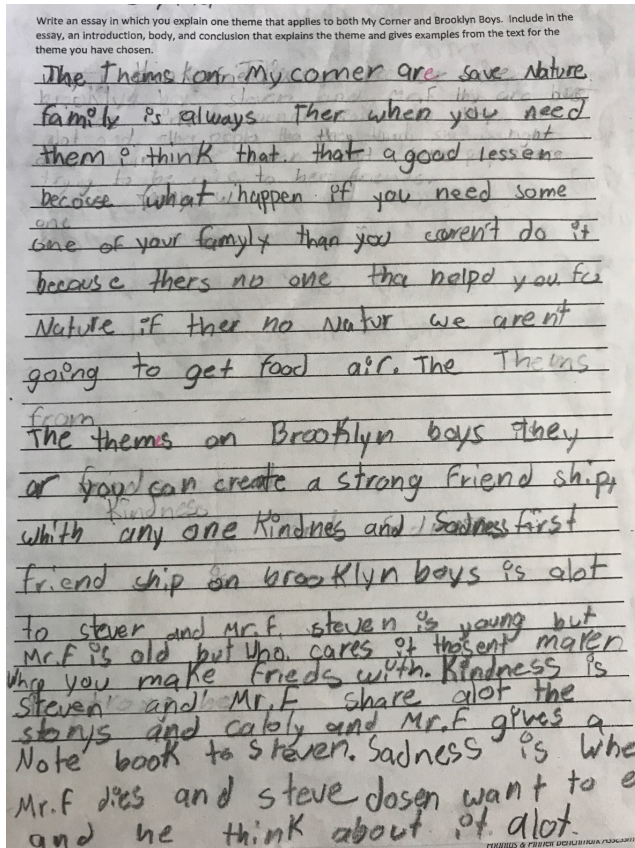 Write an essay in which you explain one theme that applies to both My Corner and Brooklyn Boys. Include in the
essay, an introduction, body, and conclusion that explains the theme and gives examples from the text for the
theme you have chosen.
The Thems on My corner are save Nature
family is always Ther when you need
them i think that that a good lessen
becouse what happen if you need some
one
one of your famyly than you caren't do it
because thers no one tha helpd you. for
Nature if ther no Natur we arent
going to get food air. The Thems
from
The themes on Brooklyn boys they
or you can create a strong friend ship,
Kindness
whith any one Kindnes and Sadness first
friend ship on brooklyn boys is alot
to stever and Mr.f. steven is young but
Mr.F is old but who cares it thosent maren
you make frieds with. Kindness is
Steven and Mr.F share alot the
storys and and Mr.F gives a
Note book to Steven. Sadness is Whe
Mr.f dies and steve dosen want to e
and he think about it alot.